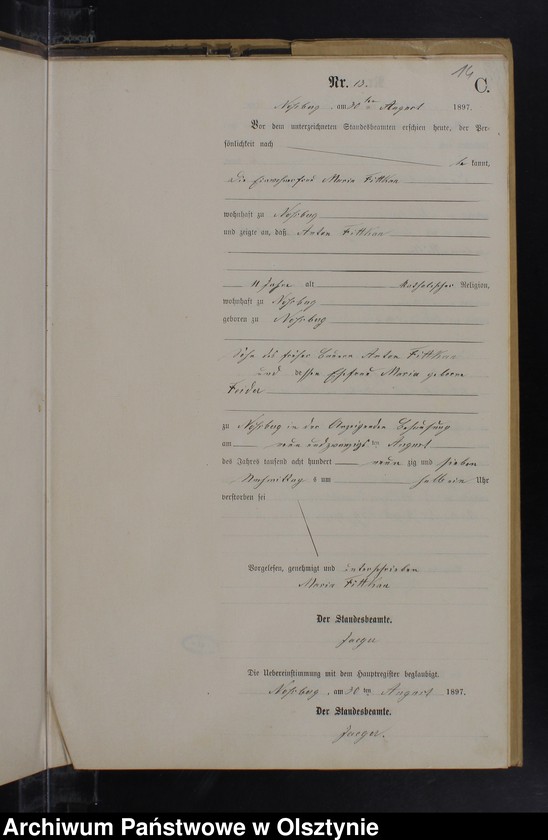 14
Nr. 13.
C.
Noßberg, am 30ten August 1897.
Vor dem unterzeichneten Standesbeamten erschien heute, der Per-
sönlichkeit nach
be kannt,
die Einwohnerfrau Maria Fittkau
wohnhaft zu Noßberg
und zeigte an, daß Anton Fittkau
11 Jahre alt katholischer Religion,
wohnhaft zu Noßberg
geboren zu Noßberg
Sohn des früher Bauern Anton Fittkau
und dessen Ehefrau Maria geborne
zu Noßberg in der Anzeigenden Behausung
am neun und zwanzigsten August
des Jahres tausend acht hundert neun zig und sieben
Nachmittags um halb ein Uhr
verstorben sei
Vorgelesen, genehmigt und unterschrieben
Maria Fittkau
Der Standesbeamte.
Jaeger
Die Uebereinstimmung mit dem Hauptregister beglaubigt.
Noßberg, am 30ten August 1897.
Der Standesbeamte.
Jaeger.
Archiwum Państwowe w Olsztynie